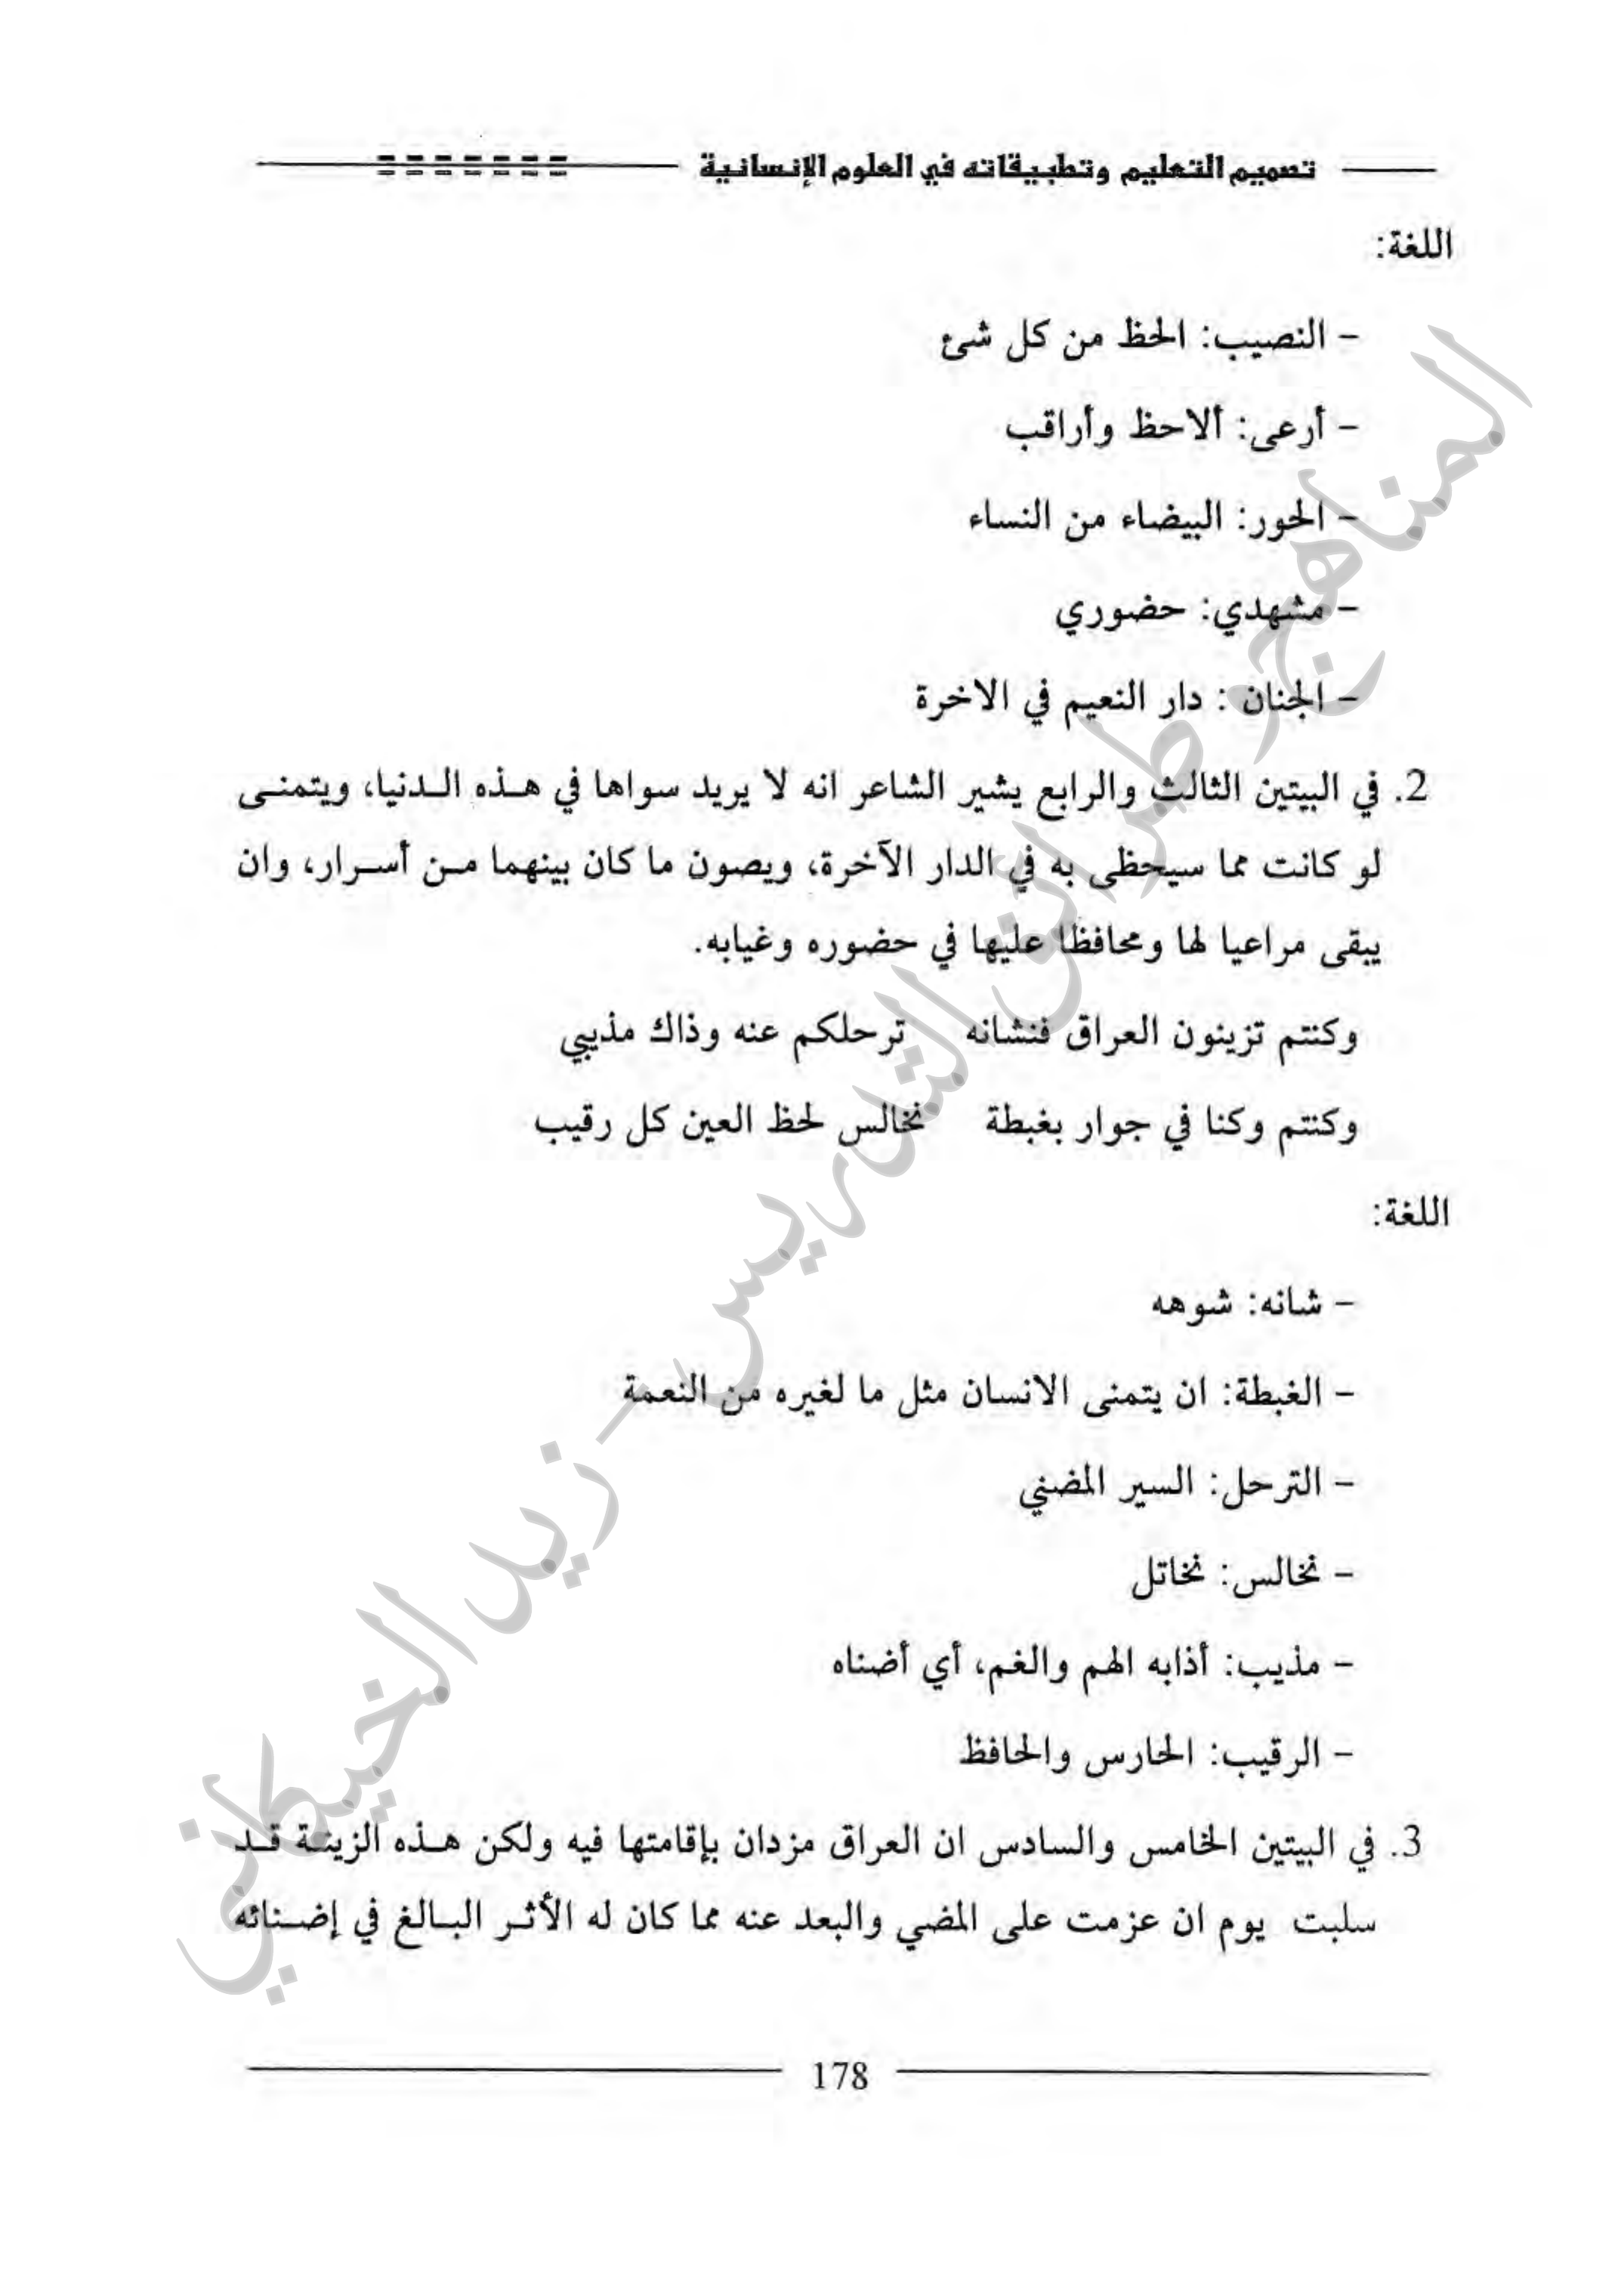 تصميم التعليم وتطبيقاته في العلوم الإنسانية
اللغة:
– النصيب: الحظ من كل شئ
– أرعى: ألاحظ وأراقب
– الحور: البيضاء من النساء
– مشهدي: حضوري
– الجنان : دار النعيم في الاخرة
2. في البيتين الثالث والرابع يشير الشاعر انه لا يريد سواها في هذه الدنيا، ويتمنى
لو كانت مما سيحظى به في الدار الآخرة، ويصون ما كان بينهما من أسرار، وان
يبقى مراعيا لها ومحافظا عليها في حضوره وغيابه.
وكنتم تزينون العراق فنشانه ترحلكم عنه وذاك مذيبي
وكنتم وكنا في جوار بغبطة نخالس لحظ العين كل رقيب
اللغة:
– شانه: شوهه
– الغبطة: ان يتمنى الانسان مثل ما لغيره من النعمة
– الترحل: السير المضني
– نخالس: نخاتل
– مذيب: أذابه الهم والغم، أي أضناه
– الرقيب: الحارس والحافظ
3. في البيتين الخامس والسادس ان العراق مزدان بإقامتها فيه ولكن هذه الزينة قد
سلبت يوم ان عزمت على المضي والبعد عنه مما كان له الأثر البالغ في إضنائه
178
المناهج وطرائق التدريس - زيد الخيكاني